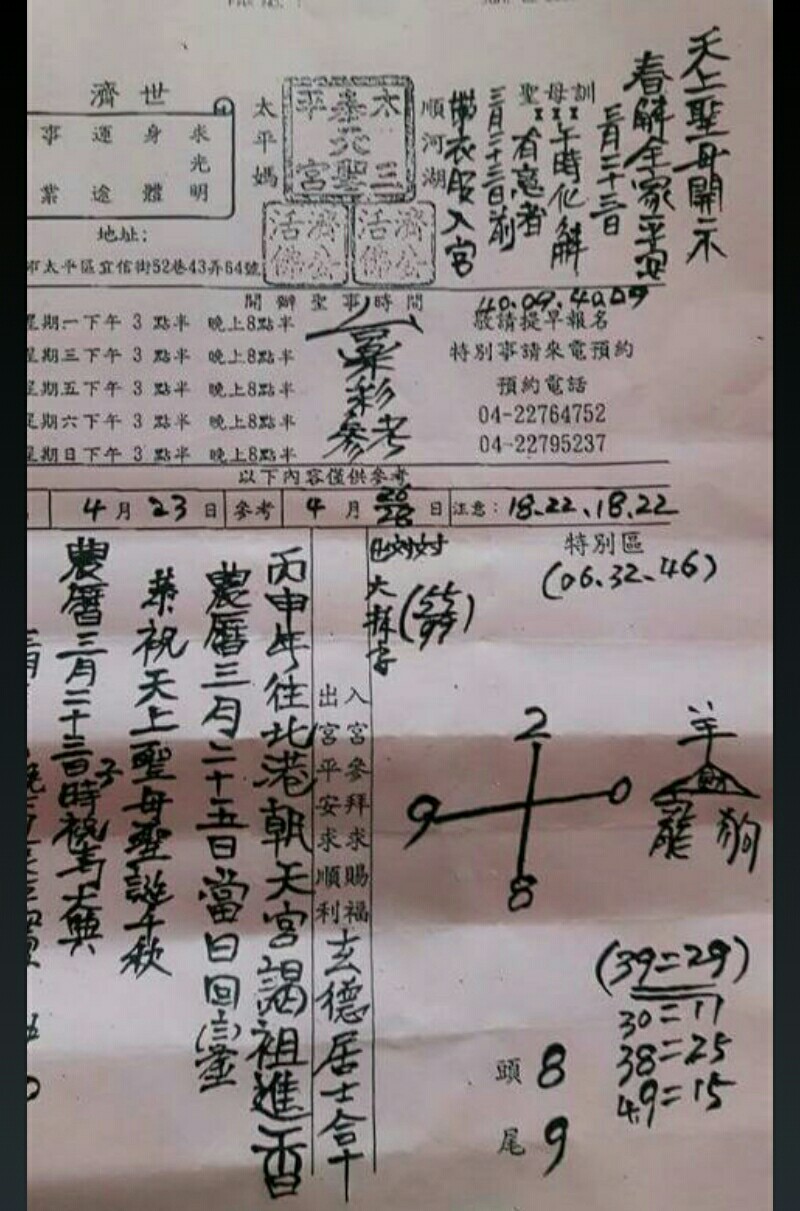 天上聖母開示
春解全家平安
三月二十三日
聖母訓
午時化解
有意者
三月二十三日前
帶衣服入宮
順河湖
太平媽
太三
泰元聖
平宮
濟公
活佛
濟公
活佛
濟世
求光明
身體
運途
事業
地址:
市太平區宜信街52巷43弄64號
開辦聖事時間
40.09.40.09
星期一下午 3 點半 晚上8點半
星期三下午 3 點半 晚上8點半
星期五下午 3 點半 晚上8點半
星期六下午 3 點半 晚上8點半
星期日下午 3 點半 晚上8點半
彩
參考
敬請提早報名
特別事請來電預約
預約電話
04-22764752
04-22795237
以下內容僅供參考
4 月 23 日 參考 4 月 26 28 日 注意: 18.22.18.22
特別區
(06.32.46)
(55
99)
入宮參拜求賜福
出宮平安求順利
玄德居士合十
丙申年往北港朝天宮謁祖進香
農曆三月二十五日當日回鑾
恭祝天上聖母聖誕千秋
農曆三月二十三日子時祝壽大典
2
9 0
8
羊
財
龍 狗
(39=29)
30=11
38=25
49=15
頭 8
尾 9